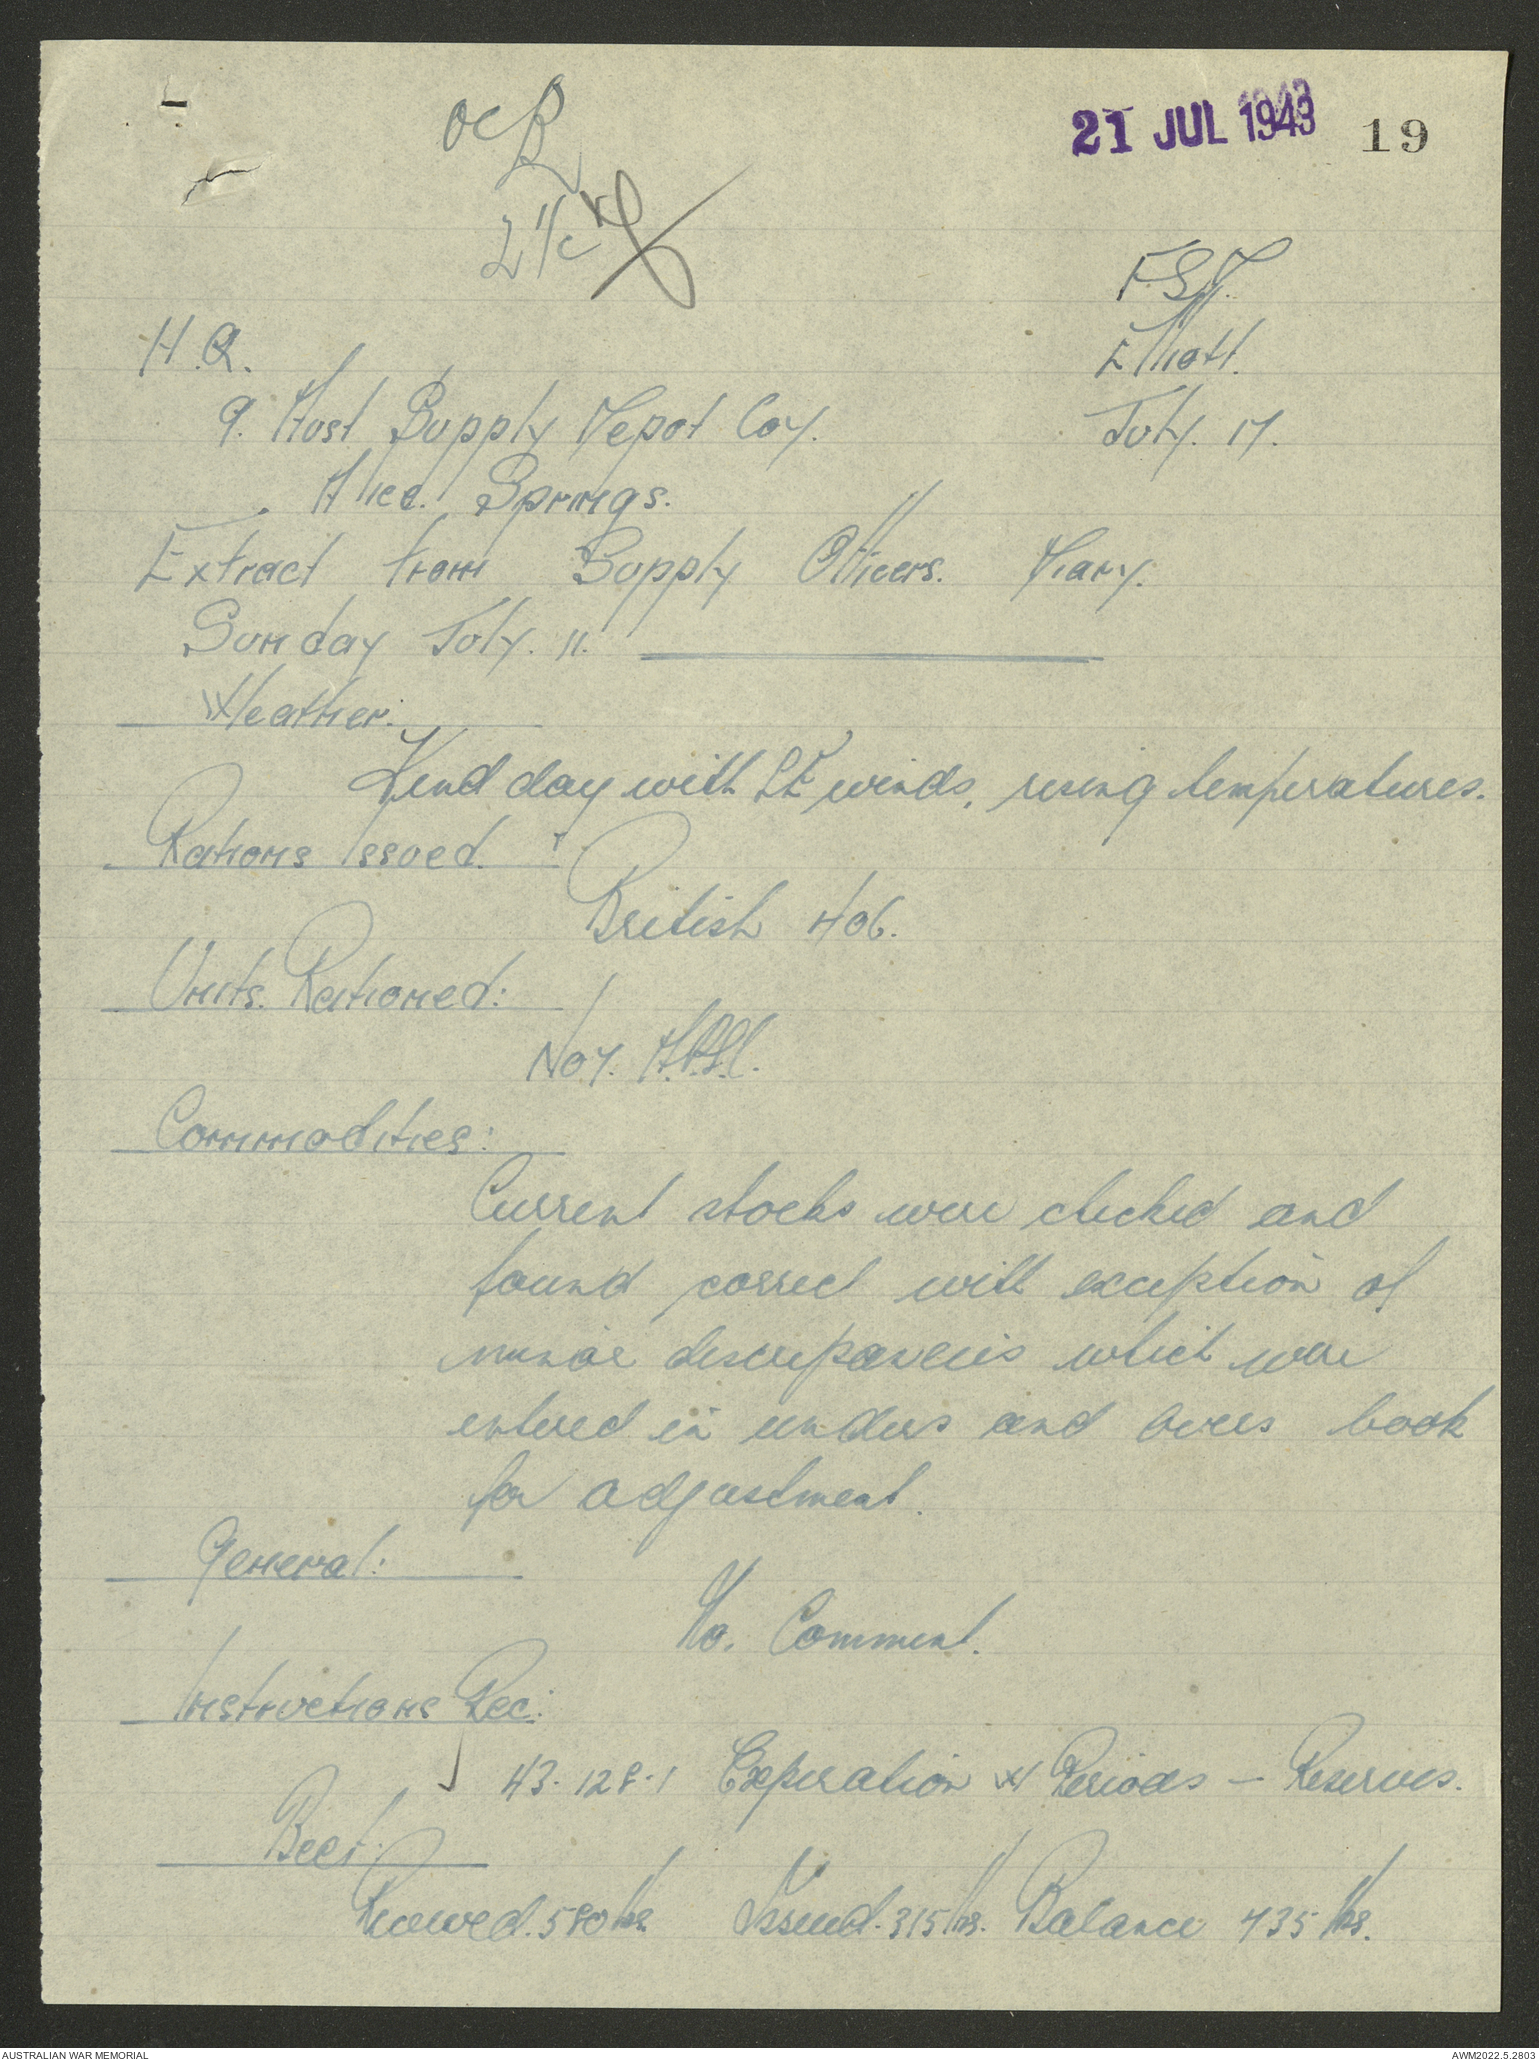 OC
21 JUL 1943
19
F.S.D.
Elliott.
H.Q.
9. Aust Supply Depot Coy.
July. 17.
Alice. Springs.
Extract from Supply Officers. Diary.
Sunday July. 11.
Weather:
Kind day with SE winds, rising temperatures.
Rations Issued:
British 406.
Units. Rationed:
Commodities:
Current stocks were checked and
found correct with exception of
minor discrepancies which were
entered in unders and overs book
for adjustment.
General:
No. Comment.
Instructions Rec:
43. 128.1 Experation of Periods — Reserves.
Beef:
Received. 580 lbs Issued. 315 lbs. Balance 435 lbs.
AUSTRALIAN WAR MEMORIAL
AWM2022.5.2803